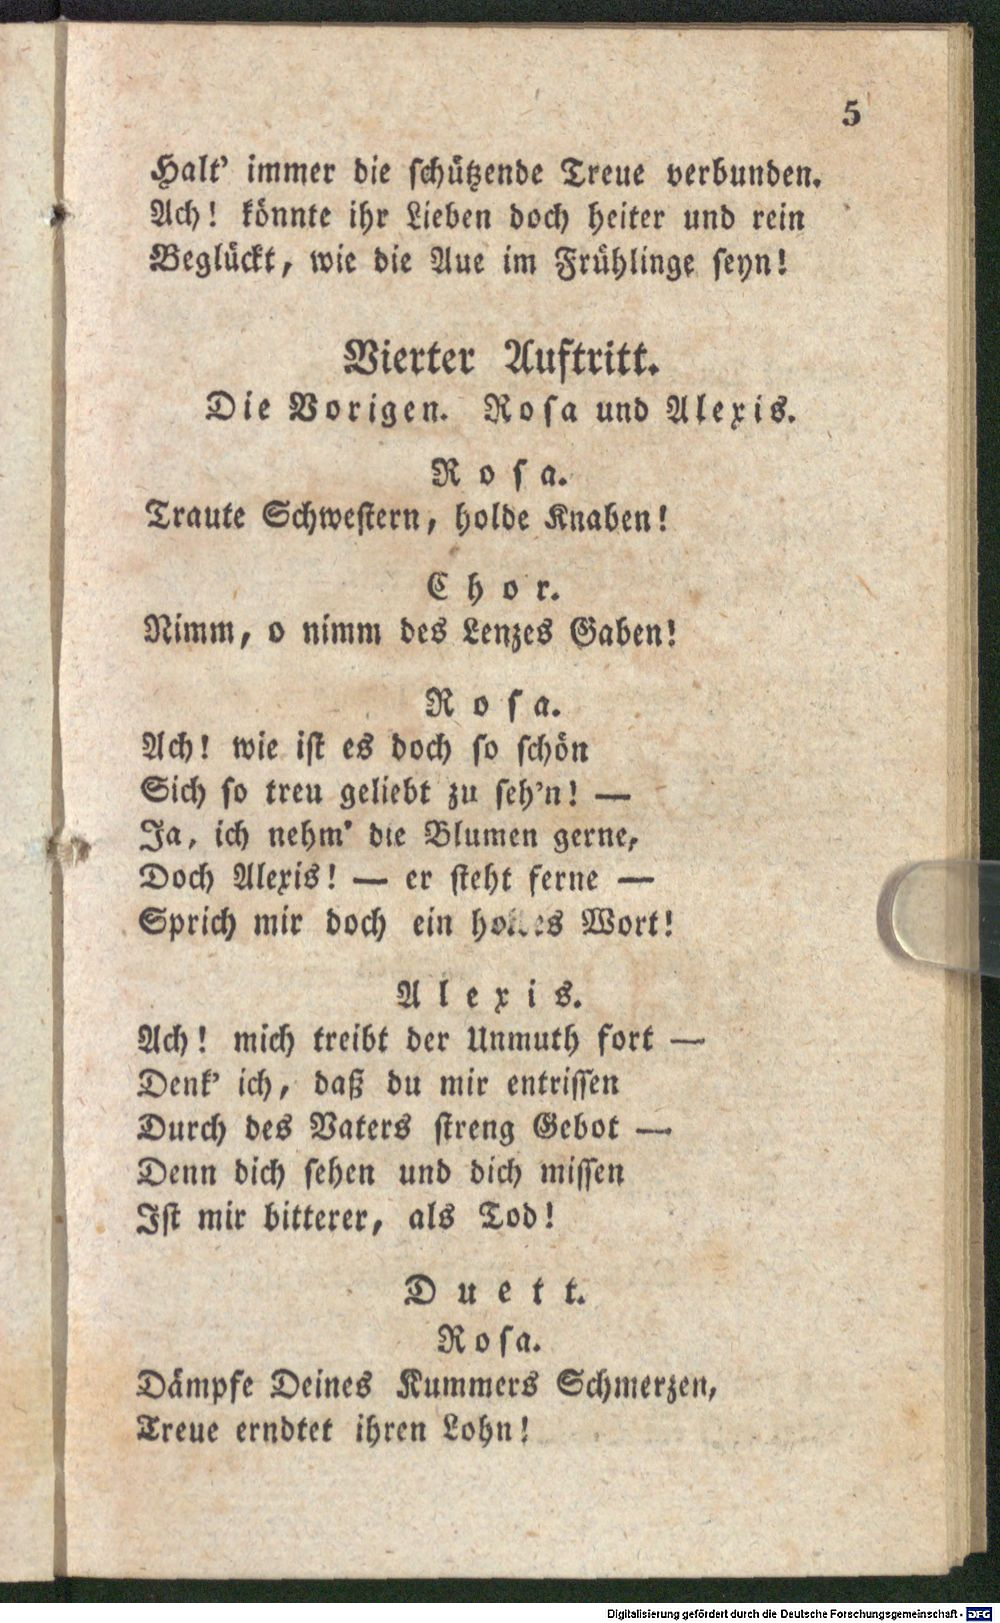 5
Halt' immer die schützende Treue verbunden.
Ach! könnte ihr Lieben doch heiter und rein
Beglückt, wie die Aue im Frühlinge seyn!
Vierter Auftritt.
Die Vorigen. Rosa und Alexis.
Rosa.
Traute Schwestern, holde Knaben!
Chor.
Nimm, o nimm des Lenzes Gaben!
Rosa.
Ach! wie ist es doch so schön
Sich so treu geliebt zu seh'n! —
Ja, ich nehm' die Blumen gerne,
Doch Alexis! — er steht ferne —
Sprich mir doch ein Wort!
Alexis.
Ach! mich treibt der Unmuth fort —
Denk' ich, daß du mir entrissen
Durch des Vaters streng Gebot —
Denn dich sehen und dich missen
Ist mir bitterer, als Tod!
Duett.
Rosa.
Dämpfe Deines Kummers Schmerzen,
Treue erndtet ihren Lohn!
Digitalisierung gefördert durch die Deutsche Forschungsgemeinschaft - DFG